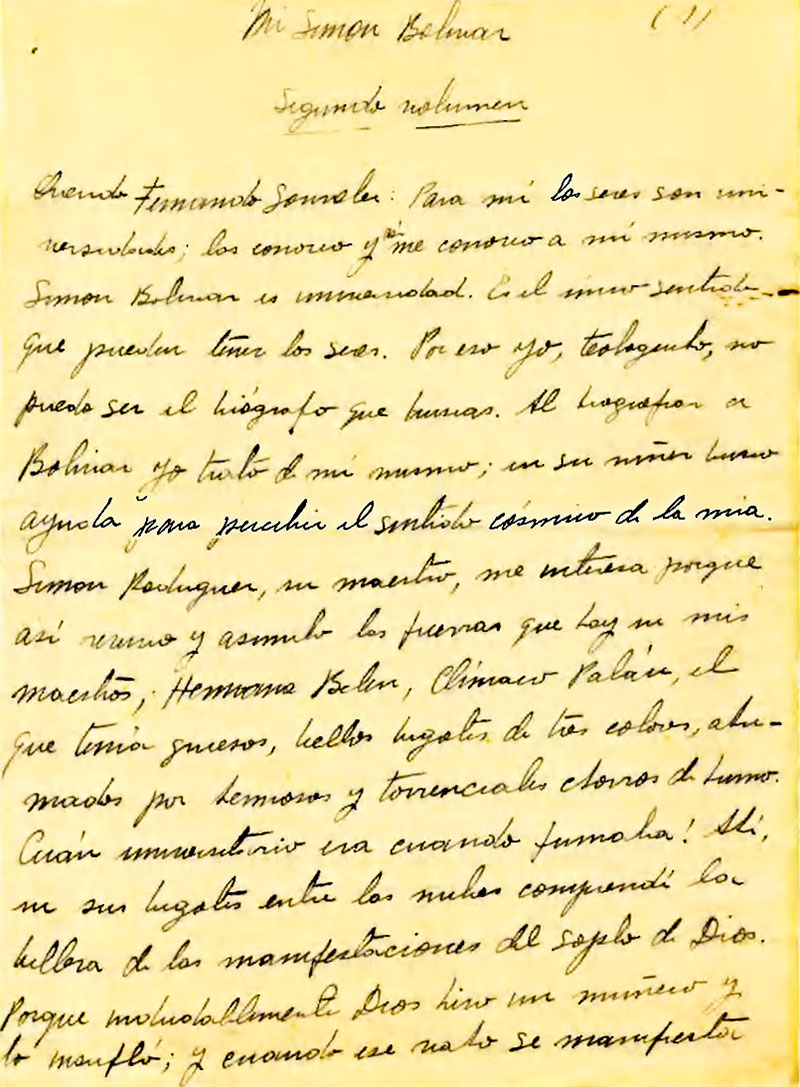 Mi Simón Bolívar (1)
Segundo volumen
Querido Fernando González: Para mí los seres son uni-
versidades; los conozco y así me conozco a mí mismo.
Simón Bolívar es universidad. Es el único sentido
que pueden tener los seres. Por eso yo, teologento, no
puedo ser el biógrafo que buscas. Al biografiar a
Bolívar yo trato de mí mismo; en su niñez busco
ayuda para percibir el sentido cósmico de la mía.
Simón Rodríguez, su maestro, me interesa porque
así reúno y asimilo las fuerzas que hay en mis
maestros; Hermana Belén, Clímaco Palán, el
que tenía gruesos, bellos bigotes de tres colores, ahu-
mados por hermosos y torrenciales chorros de humo.
Cuán universitario era cuando fumaba! Allí,
en sus bigotes entre las nubes comprendí la
belleza de las manifestaciones del soplo de Dios.
Porque indudablemente Dios hizo un muñeco y
lo insufló; y cuando ese vaho se manifiesta